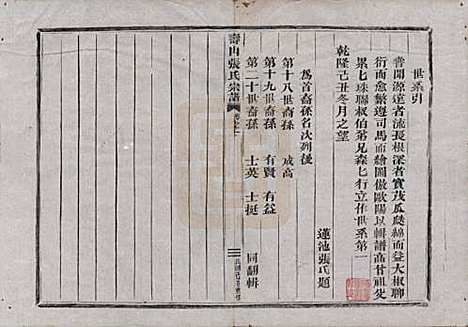 世系引
嘗聞源遠者流長根深者實茂瓜瓞綿而益大椒聊
衍而愈繁遵司馬而繪圖倣歐陽以輯譜高曾祖父
累七珠聯叔伯弟兄森七行立作世系第一
乾隆己丑冬月之望
蓮池張氏題
為首裔孫名次列後
第十八世裔孫 成高
第十九世裔孫 有賢 有益
第二十世裔孫 士英 士挺
同翻輯
壽山張氏宗譜